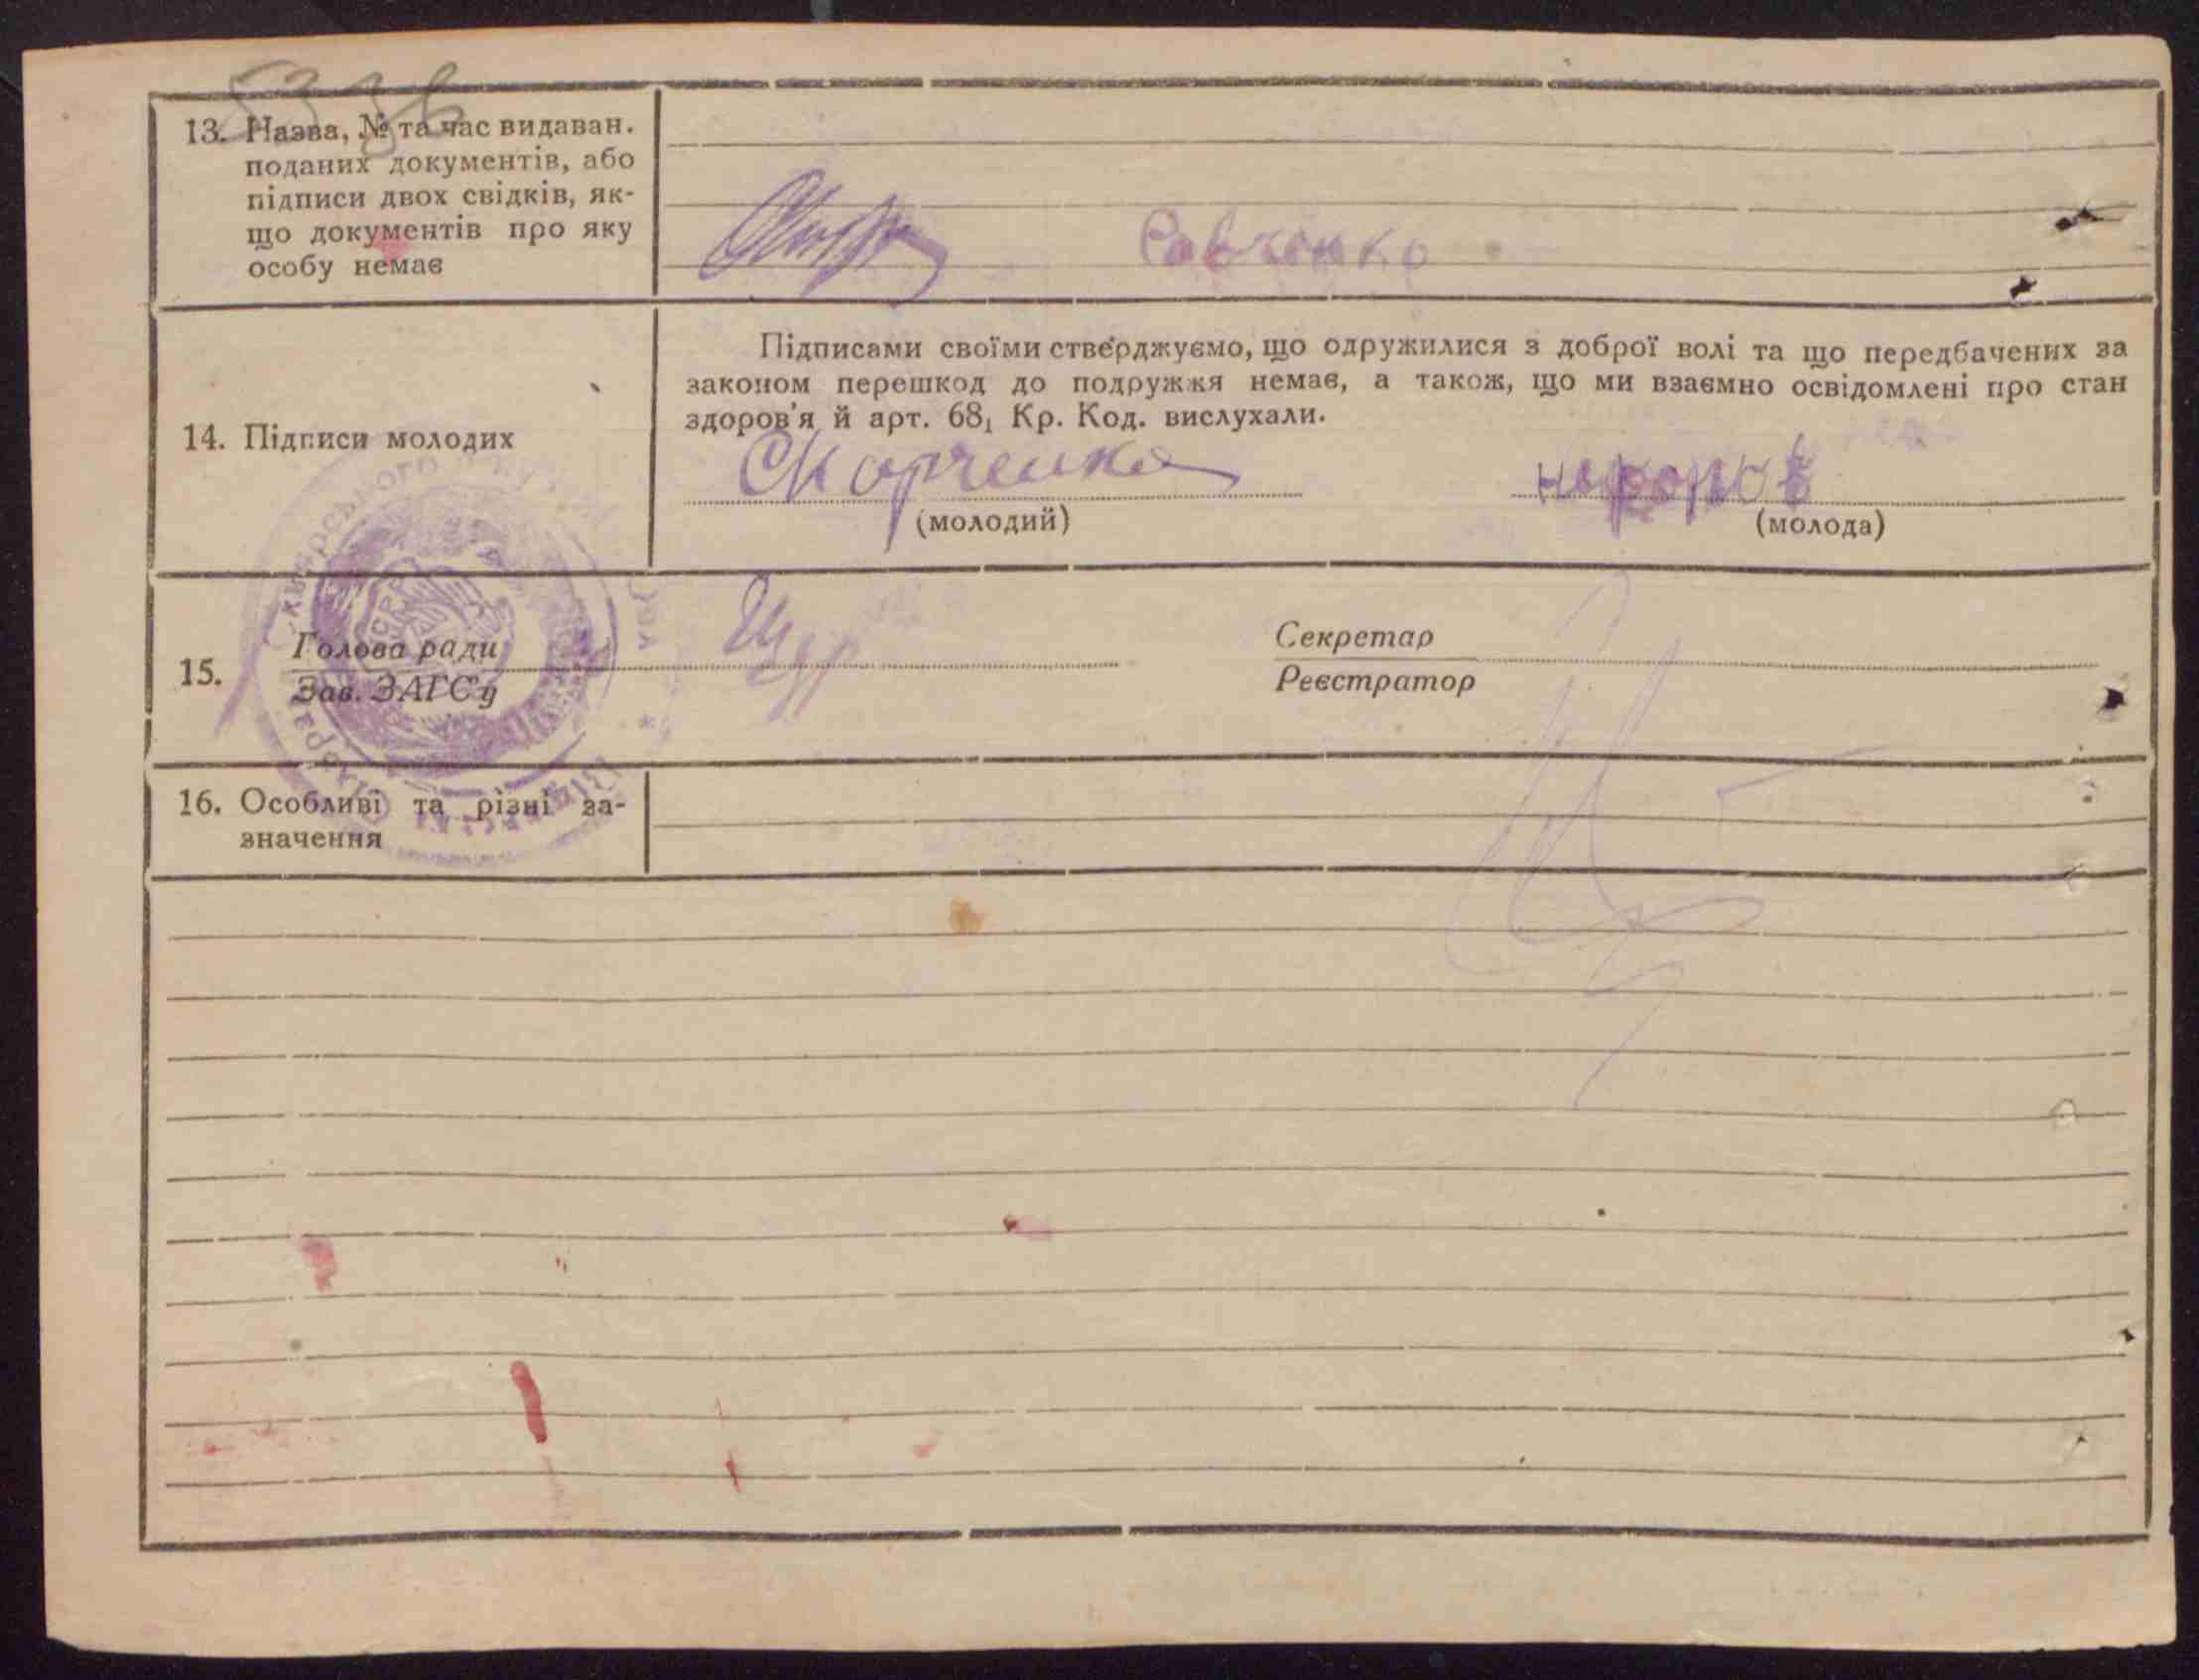 13. Назва, № та час видаван.
поданих документів, або
підписи двох свідків, як-
що документів про яку
особу немає
Савченко
Підписами своїми стверджуємо, що одружилися з доброї волі та що передбачених за
законом перешкод до подружжя немає, а також, що ми взаємно освідомлені про стан
здоров'я й арт. 68₁ Кр. Код. вислухали.
14. Підписи молодих
(молодий)
(молода)
15.
Голова ради
Зав. ЗАГС'у
Секретар
Реєстратор
16. Особливі та різні за-
значення